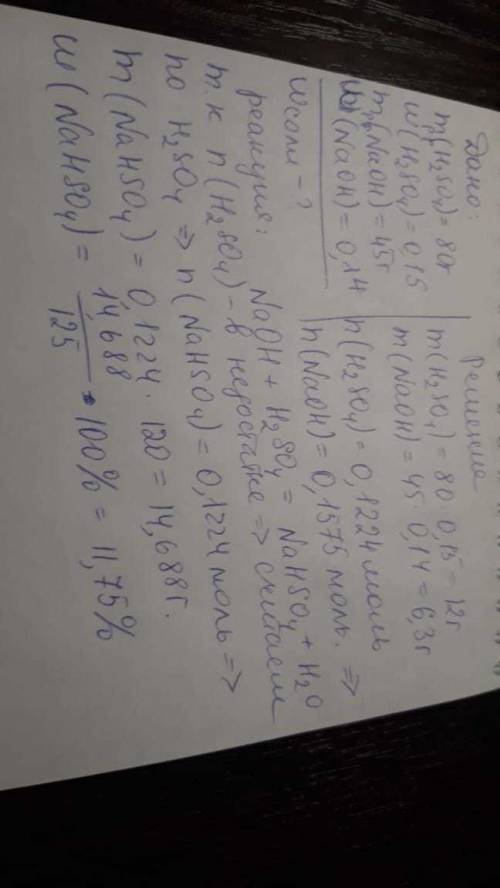 Дано:
m(H₂SO₄) = 80г
w(H₂SO₄) = 0,15
m(NaOH) = 45г
w(NaOH) = 0,14
wсоли - ?
Решение
m(H₂SO₄) = 80 · 0,15 = 12г
m(NaOH) = 45 · 0,14 = 6,3г
n(H₂SO₄) = 0,1224 моль
n(NaOH) = 0,1575 моль. =>
реакция: NaOH + H₂SO₄ = NaHSO₄ + H₂O
т.к n(H₂SO₄) - в недостатке => считаем
по H₂SO₄ => n(NaHSO₄) = 0,1224 моль =>
m(NaHSO₄) = 0,1224 · 120 = 14,688г.
w(NaHSO₄) = 14,688 / 125 · 100% = 11,75%